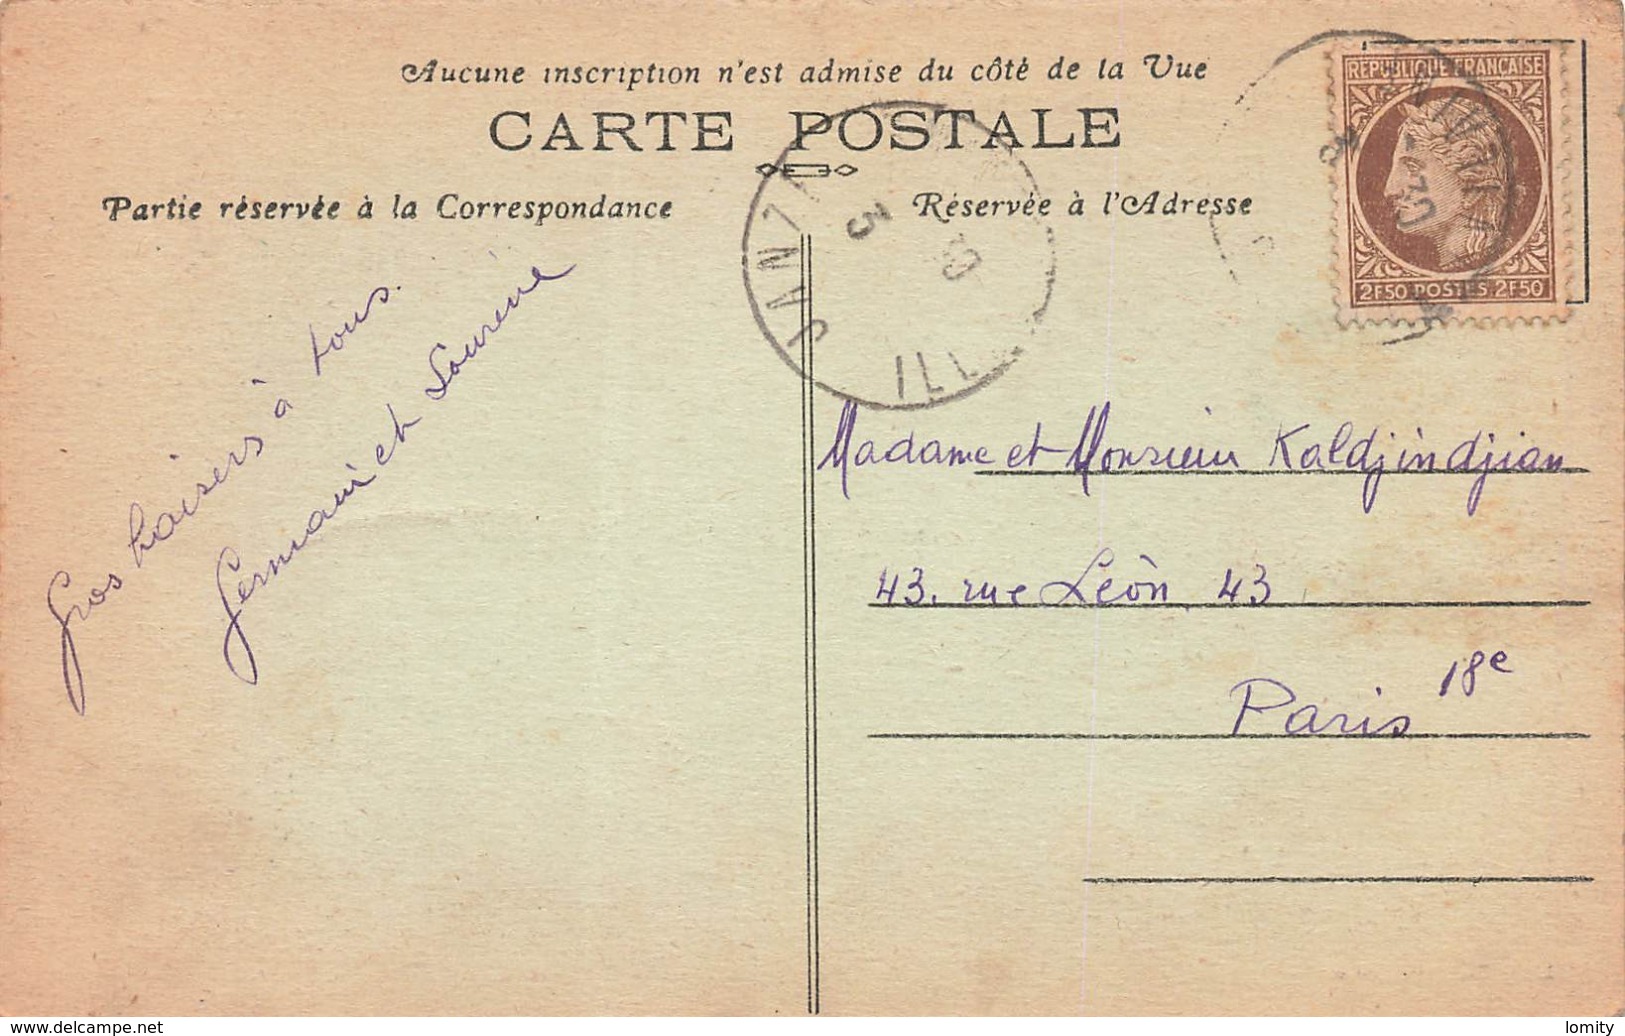 Aucune inscription n'est admise du côté de la Vue
CARTE POSTALE
Partie réservée à la Correspondance
Réservée à l'Adresse
RÉPUBLIQUE FRANÇAISE
2F50 POSTES 2F50
Gros baisers à tous.
Germain et
Madame et Monsieur Kaldjindjian
43, rue Léon, 43
Paris 18e
www.delcampe.net
lomity